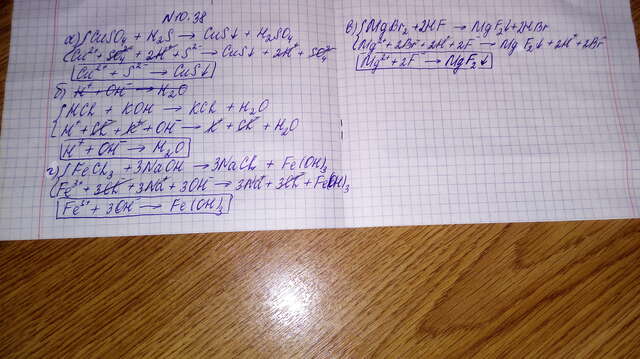 N10.38
а) { CuSO₄ + H₂S → CuS↓ + H₂SO₄
Cu²⁺ + SO₄²⁻ + 2H⁺ + S²⁻ → CuS↓ + 2H⁺ + SO₄²⁻
Cu²⁺ + S²⁻ → CuS↓
б) H⁺ + OH⁻ → H₂O
{ HCl + KOH → KCl + H₂O
H⁺ + Cl⁻ + K⁺ + OH⁻ → K⁺ + Cl⁻ + H₂O
H⁺ + OH⁻ → H₂O
г) { FeCl₃ + 3NaOH → 3NaCl + Fe(OH)₃
Fe³⁺ + 3Cl⁻ + 3Na⁺ + 3OH⁻ → 3Na⁺ + 3Cl⁻ + Fe(OH)₃
Fe³⁺ + 3OH⁻ → Fe(OH)₃
в) { MgBr₂ + 2HF → MgF₂↓ + 2HBr
Mg²⁺ + 2Br⁻ + 2H⁺ + 2F⁻ → MgF₂↓ + 2H⁺ + 2Br⁻
Mg²⁺ + 2F⁻ → MgF₂↓